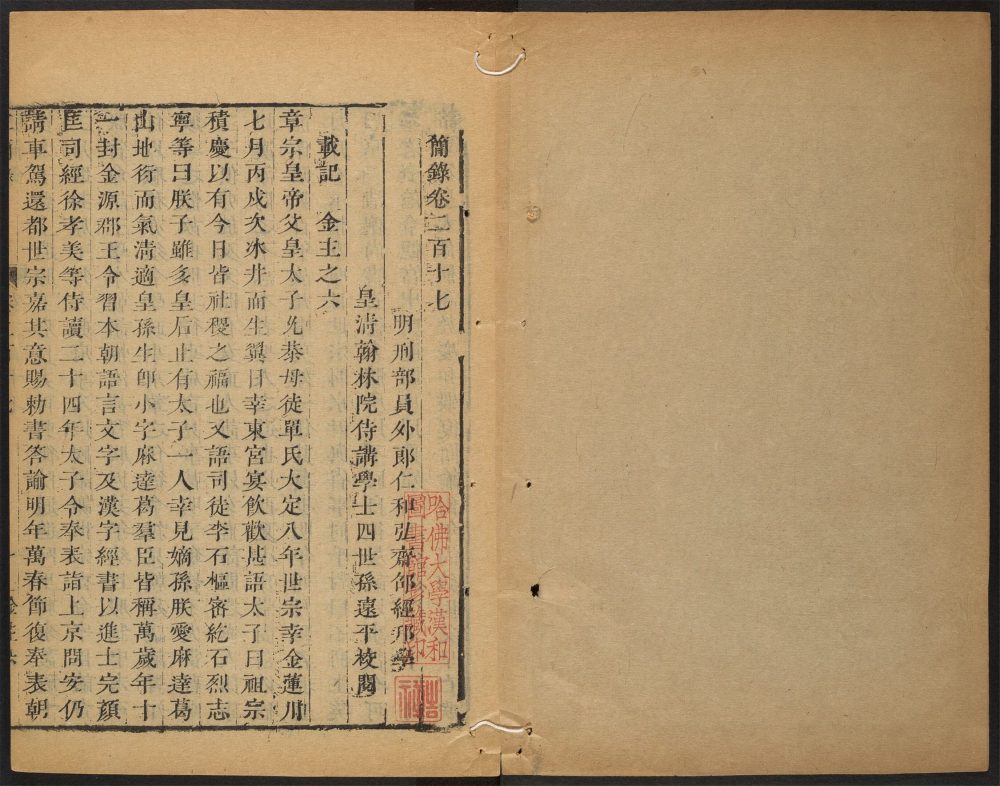 簡錄卷二百十七
明刑部員外郎仁和弘齋邵經邦學
皇清翰林院侍講學士四世孫遠平校閱
載記　金主之六
章宗皇帝父皇太子允恭母徒單氏大定八年世宗幸金蓮川
七月丙戍次冰井而生翼日幸東宮宴飲歡甚語太子曰祖宗
積慶以有今日皆社稷之福也又語司徒李石樞密紇石烈志
寧等曰朕子雖多皇后止有太子一人幸見嫡孫朕愛麻達葛
山地衍而氣清適皇孫生卽小字麻達葛羣臣皆稱萬歲年十
一封金源郡王令習本朝語言文字及漢字經書以進士完顏
匡司經徐孝美等侍讀二十四年太子令奉表詣上京問安仍
請車駕還都世宗嘉其意賜勅書答諭明年萬春節復奉表朝
哈佛大學漢和
圖書館珍藏印